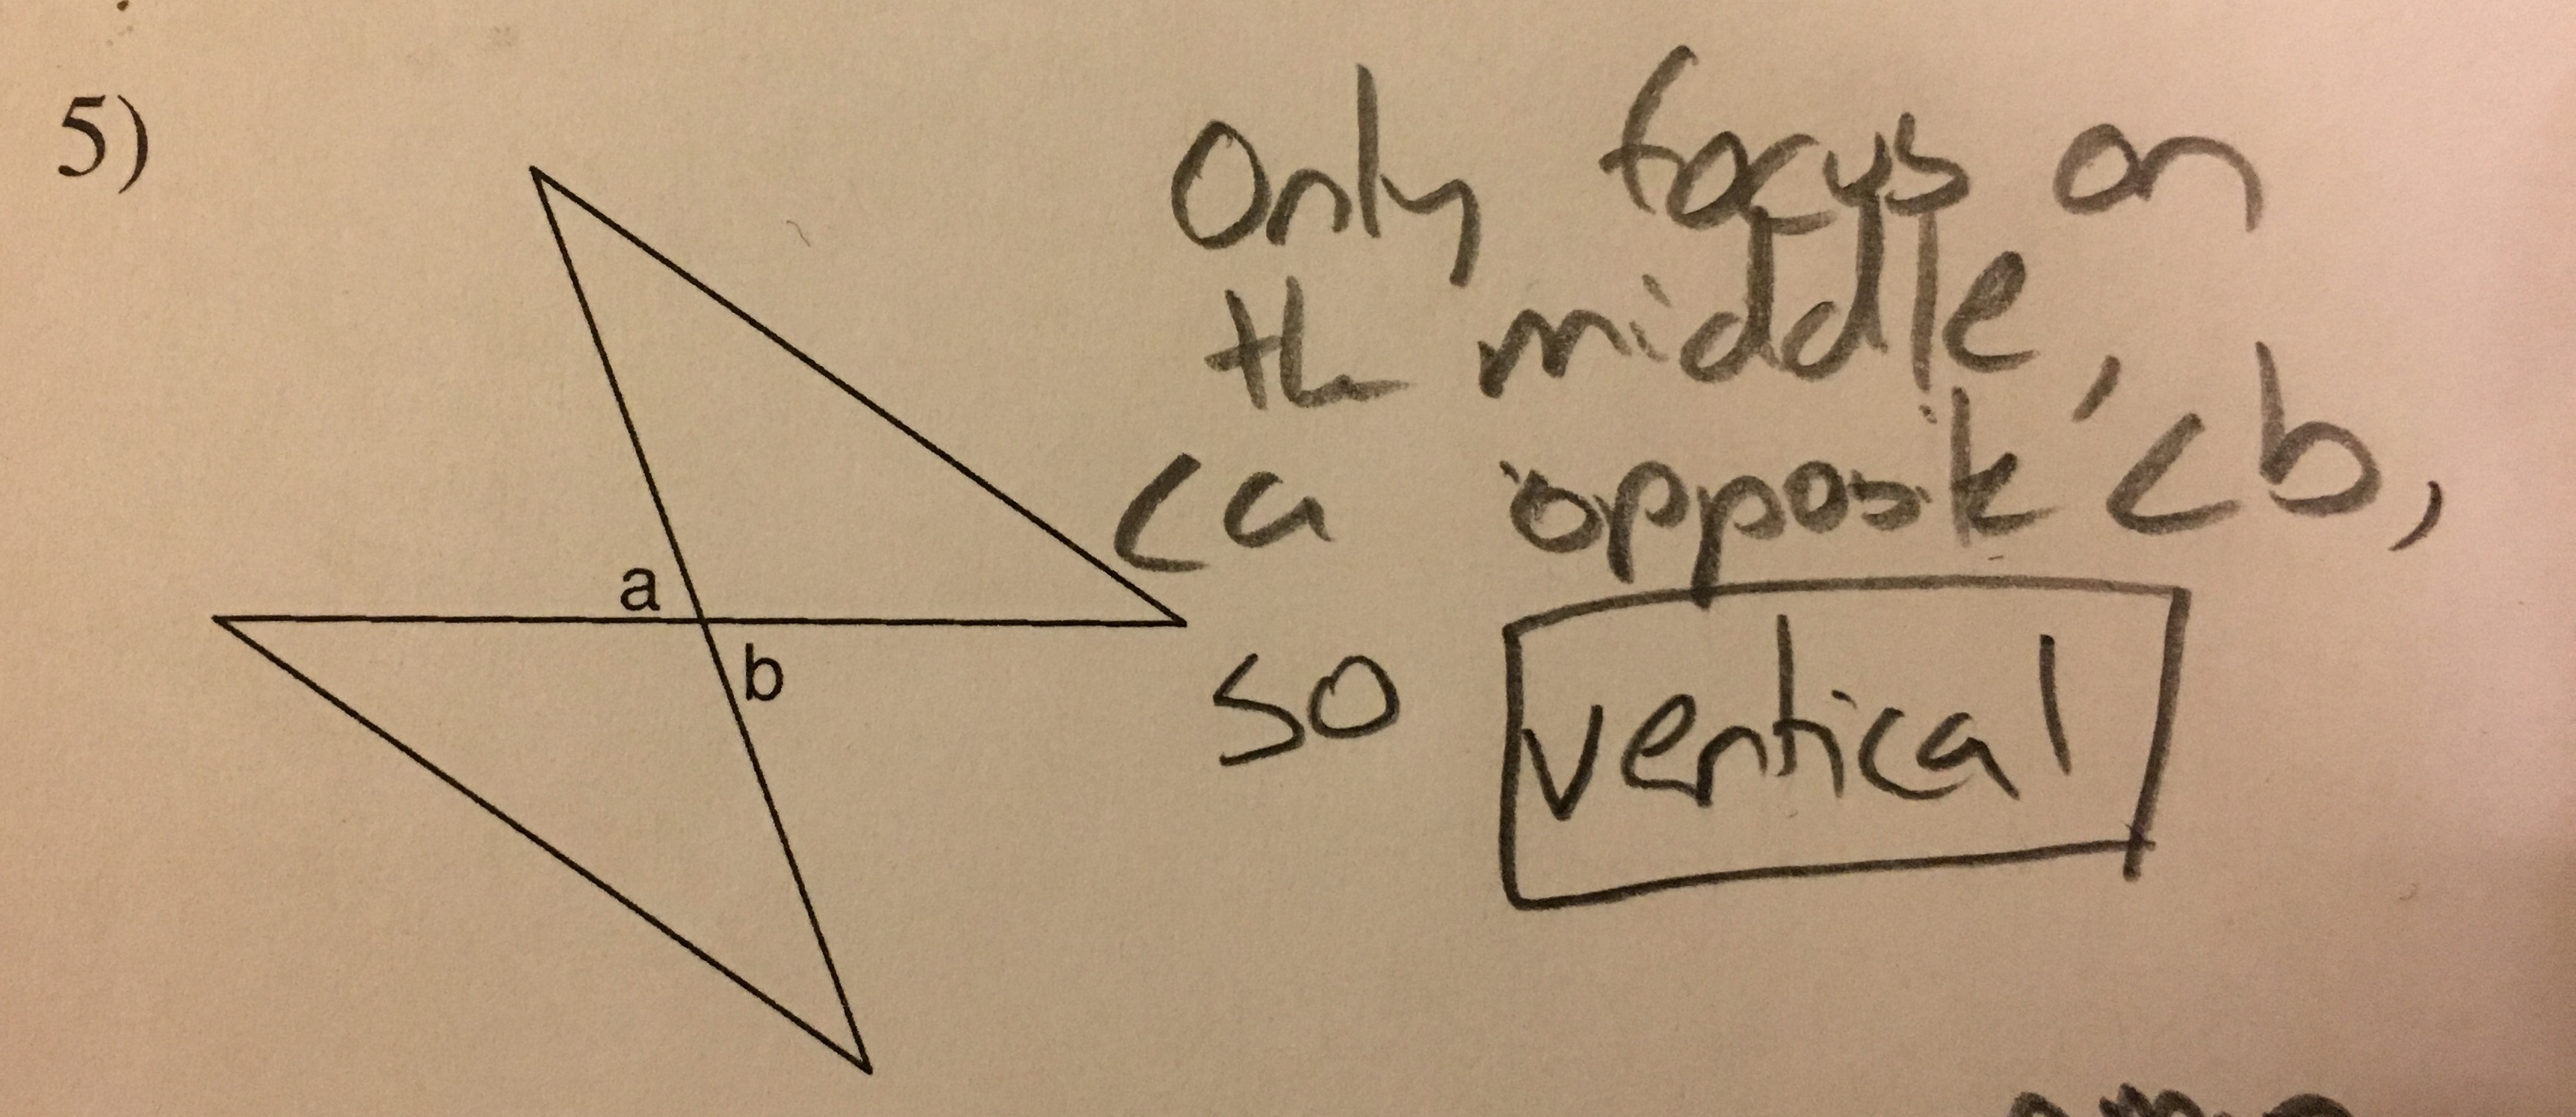 5)
Only focus on
the middle,
<a opposite <b,
so vertical
a
b